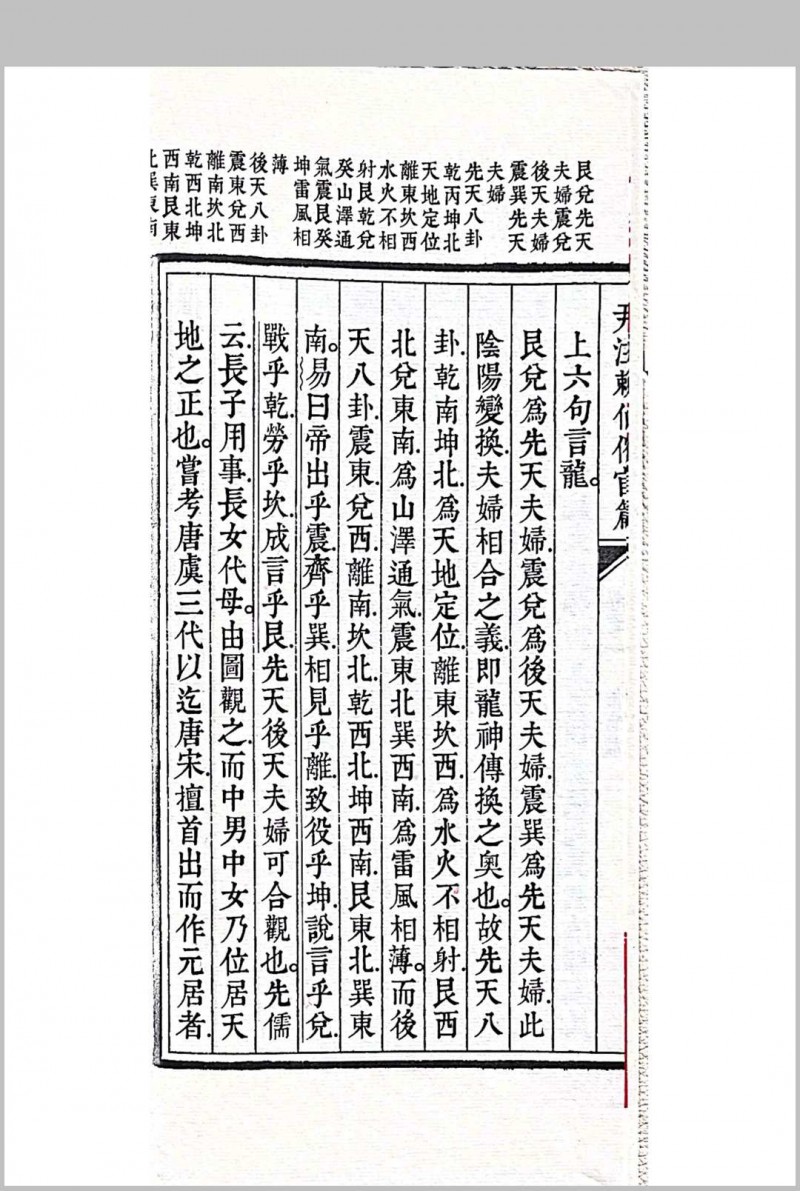 艮兌先天
夫婦震兌
後天夫婦
震巽先天
夫婦
先天八卦
乾丙坤北
天地定位
離東坎西
水火不相
射艮乾兌
癸山澤通
氣震艮癸
坤雷風相
薄
後天八卦
震東兌西
離南坎北
乾西北坤
西南艮東
北巽東南
官篇
上六句言龍。
艮兌爲先天夫婦.震兌爲後天夫婦.震巽爲先天夫婦.此
陰陽變換.夫婦相合之義.即龍神傳換之奥也。故先天八
卦.乾南坤北.爲天地定位.離東坎西.爲水火不相射.艮西
北兌東南.爲山澤通氣.震東北巽西南.爲雷風相薄。而後
天八卦.震東兌西.離南坎北.乾西北.坤西南.艮東北.巽東
南。易曰帝出乎震.齊乎巽.相見乎離.致役乎坤.說言乎兌.
戰乎乾.勞乎坎.成言乎艮.先天後天夫婦可合觀也。先儒
云.長子用事.長女代母。由圖觀之.而中男中女乃位居天
地之正也。嘗考唐虞三代以迄唐宋.擅首出而作元居者.